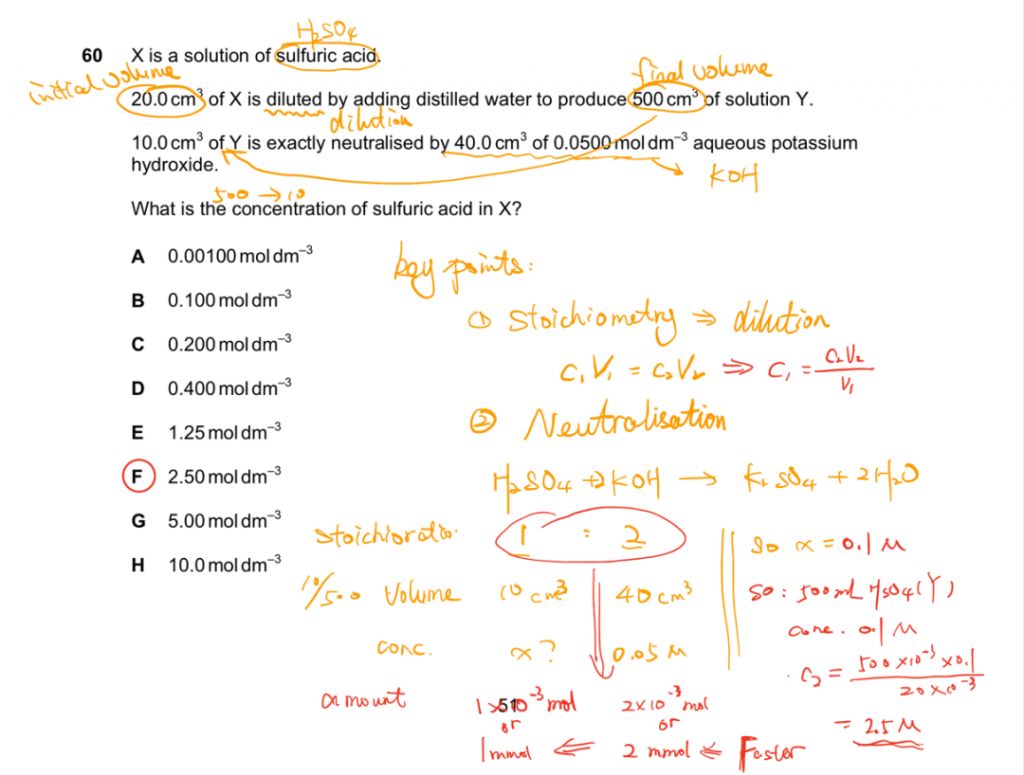 H₂SO₄
60 X is a solution of sulfuric acid.
initial volume
final volume
20.0 cm³ of X is diluted by adding distilled water to produce 500 cm³ of solution Y.
dilution
10.0 cm³ of Y is exactly neutralised by 40.0 cm³ of 0.0500 mol dm⁻³ aqueous potassium
hydroxide.
KOH
500 → 10
What is the concentration of sulfuric acid in X?
A 0.00100 mol dm⁻³
B 0.100 mol dm⁻³
C 0.200 mol dm⁻³
D 0.400 mol dm⁻³
E 1.25 mol dm⁻³
F 2.50 mol dm⁻³
G 5.00 mol dm⁻³
H 10.0 mol dm⁻³
key points:
① Stoichiometry ⇒ dilution
C₁V₁ = C₂V₂ ⇒ C₁ = C₂V₂ / V₁
② Neutralisation
H₂SO₄ + 2KOH → K₂SO₄ + 2H₂O
stoichioratio. 1 : 2
10/500 Volume 10 cm³ 40 cm³
conc. x? 0.05 M
amount 1×10⁻³ mol 2×10⁻³ mol
or or
1 mmol ⇐ 2 mmol ⇐ Faster
51
so x = 0.1 M
so: 500 mL H₂SO₄ (Y)
conc. 0.1 M
C₂ = 500×10⁻³×0.1 / 20×10⁻³
= 2.5 M